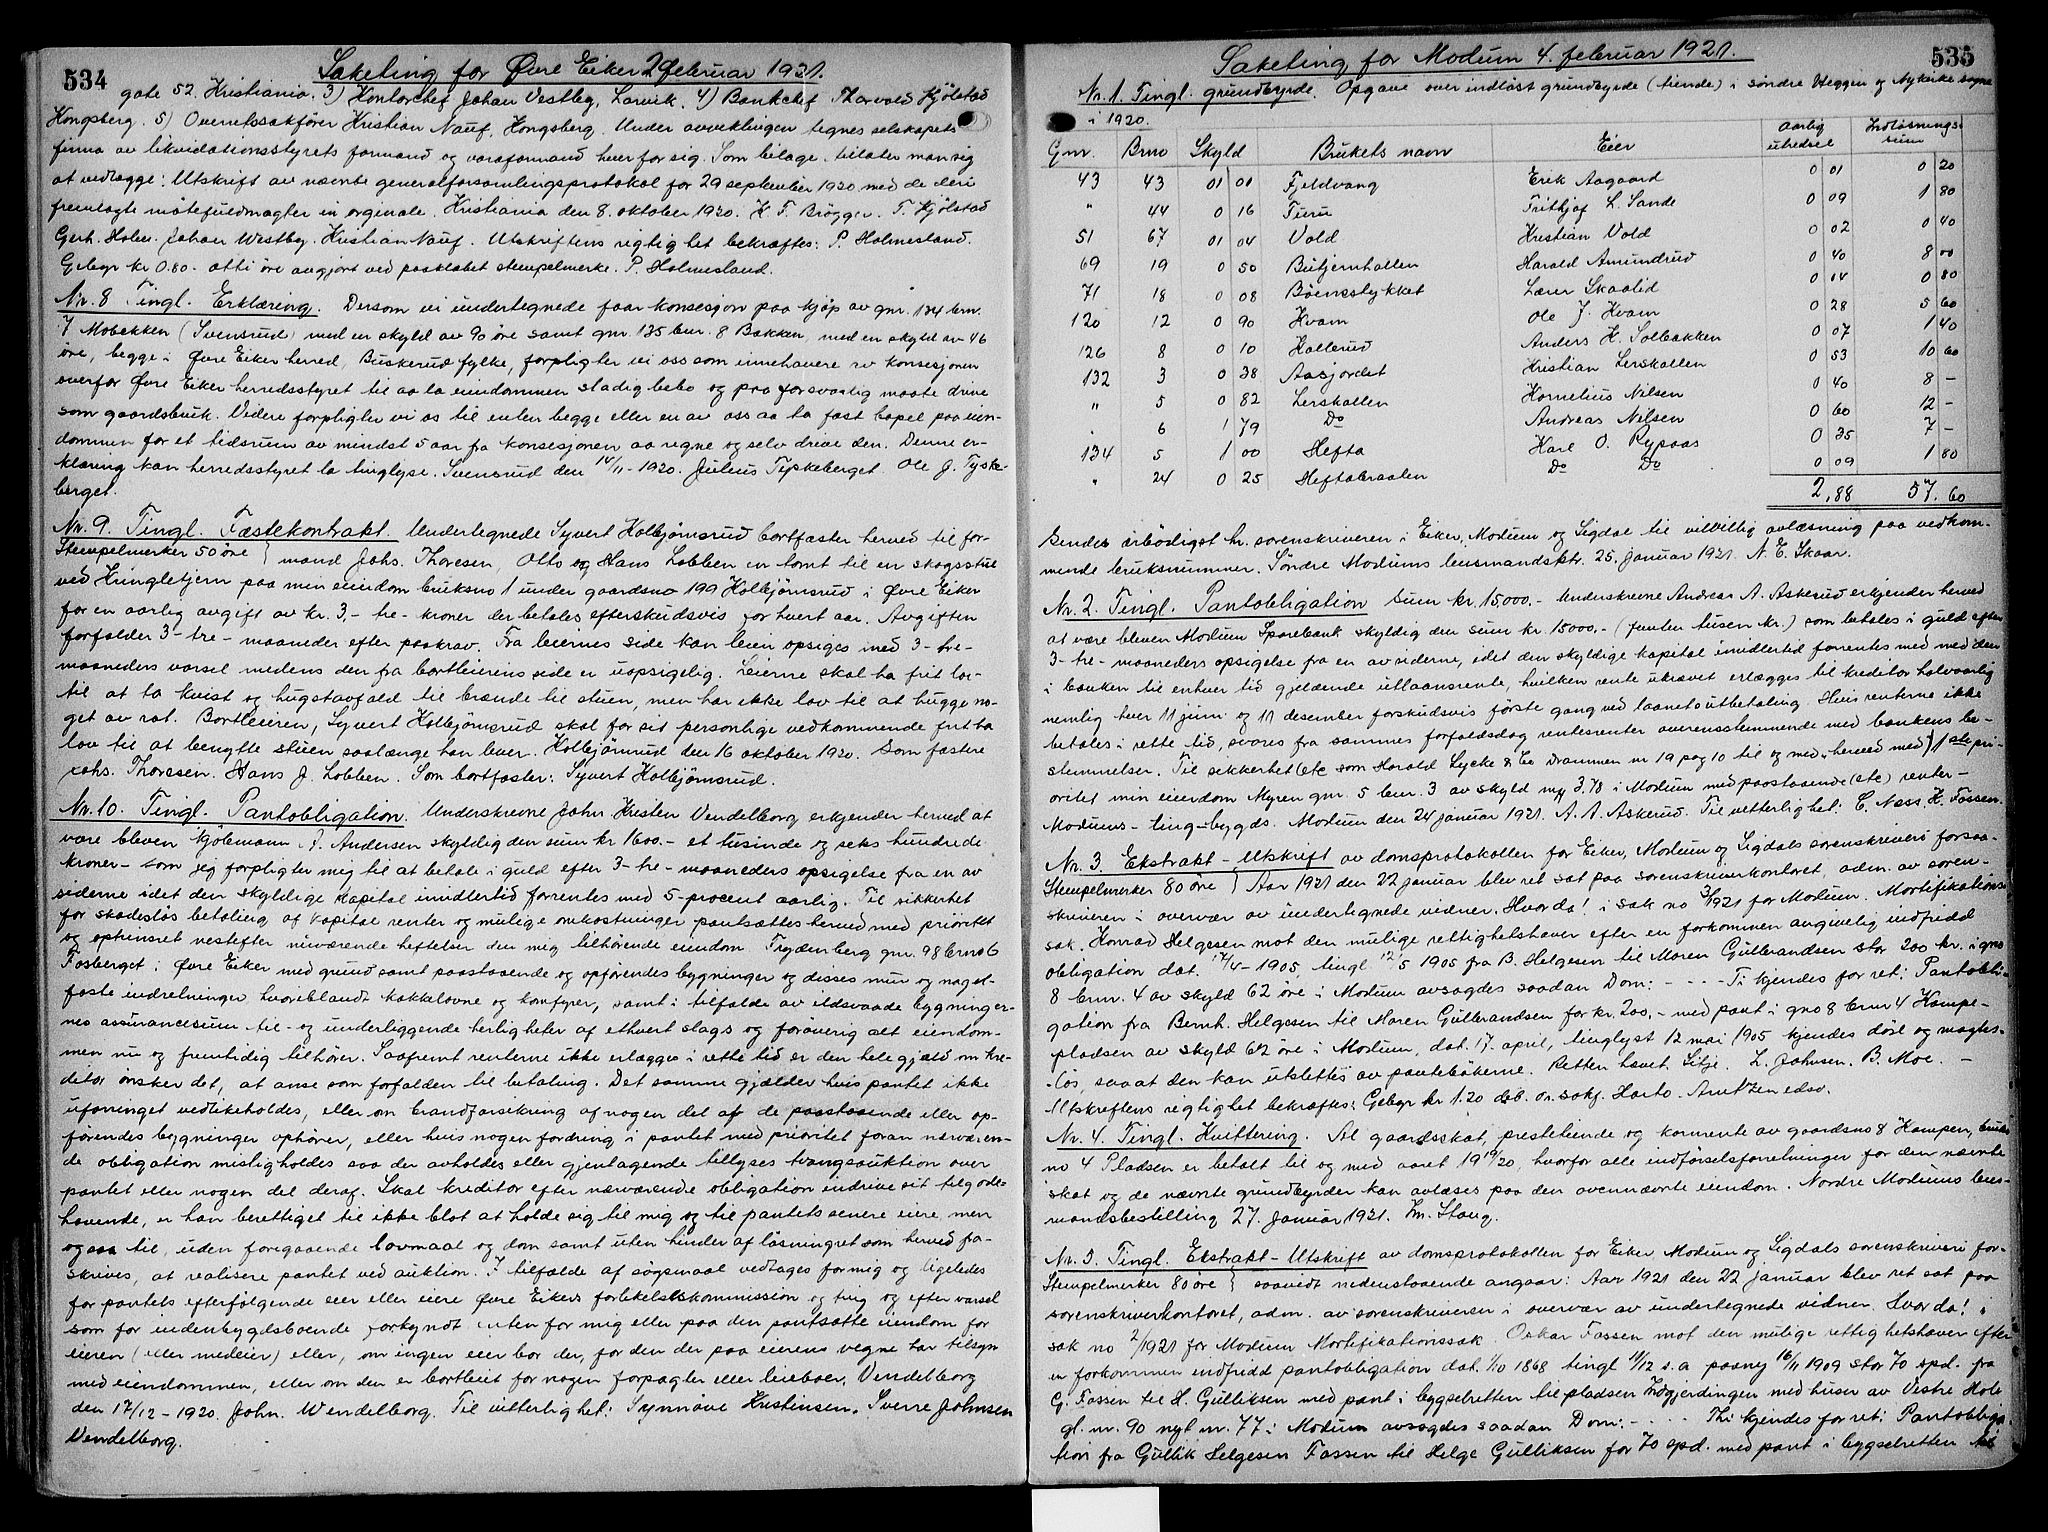 534
Saketing for Øvre Eiker 2 februar 1921.
gate 52. Kristiania. 3) Kontorchef Johan Vestby, Larvik. 4) Bankchef Thorvald Hjølstad
Kongsberg. 5) Overretssakfører Kristian Nauf, Kongsberg. Under avviklingen tegnes selskapets
firma av likvidationsstyrets formand og varaformand hver for sig. Som bilage tillater man sig
at vedlægge: Utskrift av nævnte generalforsamlingsprotokol for 29 september 1920 med de deri
fremlagte møtefuldmagter in orginale. Kristiania den 8. oktober 1920. K. F. Brøgger. T. Hjølstad
Gerh. Holm. Johan Westby. Kristian Nauf. Utskriftens rigtighet bekræftes: P. Holmesland.
Gebyr kr 0.80 - otti øre avgjort ved paaklæbet stempelmerke. P. Holmesland.
Nr. 8 Tingl. Erklæring. Dersom vi undertegnede faar konsesjon paa kjøp av gnr. 134 brn.
7 Mobækken (Svensrud) med en skyld av 90 øre samt gnr. 135 bnr. 8 Bakken, med en skyld av 46
øre, begge i Øvre Eiker herred, Buskerud fylke, forpligter vi oss som innehavere av konsesjonen
overfor Øvre Eiker herredsstyret til aa la eiendommen stadig bebo og paa forsvarlig maate drive
som gaardsbruk. Videre forpligter vi os til enten begge eller en av oss aa ta fast bopel paa eien-
dommen for et tidsrum av mindst 5 aar fra konsesjonen aa regne og selv drive den. Denne er-
klæring kan herredsstyret la tinglyse. Svensrud den 14/11-1920. Julius Tyskeberget. Ole J. Tyske-
berget.
Nr. 9. Tingl. Fæstekontrakt. Undertegnede Syvert Holbjømsrud bortfæster herved til for-
Stempelmerker 50 øre } mand Johs. Thoresen, Otto og Hans Lobben en tomt til en skogsstue
ved Kringletjern paa min eiendom bruksno 1 under gaardsno 199 Holbjømsrud i Øvre Eiker
for en aarlig avgift av kr. 3,- tre - kroner der betales efterskudsvis for hvert aar. Avgiften
forfalder 3 - tre - maaneder efter paakrav. Fra leiernes side kan leien opsiges med 3 - tre -
maaneders varsel medens den fra bortleierens side er uopsigelig. Leierne skal ha frit lov-
til at ta kvist og hugstavfald til brænde til stuen, men har ikke lov til at hugge no-
get av rot. Bortleieren, Syvert Holbjømsrud skal for sit personlige vedkommende frit ha
lov til at benytte stuen saalænge han lever. Holbjømrud den 16 oktober 1920. Som fæstere
Johs. Thoresen. Hans J. Lobben. Som bortfæster: Syvert Holbjømsrud.
Nr. 10. Tingl. Pantobligation. Underskrevne John Kristen Vendelborg erkjender herved at
være bleven kjøbmann J. Andersen skyldig den sum kr 1600.- et tusinde og seks hundrede
kroner - som jeg forpligter mig til at betale i guld efter 3 - tre - maaneders opsigelse fra en av
siderne idet den skyldige kapital imidlertid forrentes med 5 - procent aarlig. Til sikkerhet
for skadesløs betaling af kapital renter og mulige omkostninger pantsættes herved med prioritet
og optrinsret næstefter nuværende heftelser den mig tilhørende eiendom Frydenberg gnr. 98 brno 6
Fosberget i Øvre Eiker med grund samt paastaaende og opførendes bygninger og disses mur og nagel-
faste indretninger, hvoriblandt kakkelovne og komfyrer, samt i tilfælde av ildsvaade bygninger-
nes assurancesum til - og underliggende herligheter af ethvert slags og forøvrig alt eiendom-
men nu og fremtidig tilhører. Saafremt renterne ikke erlægges i rette tid er den hele gjæld om kre-
ditor ønsker det, at anse som forfalden til betaling. Det samme gjælder hvis pantet ikke
uforringet vedlikeholdes, eller om brandforsikring af nogen del af de paastaaende eller op-
førendes bygninger ophører, eller hvis nogen fordring i pantet med prioritet foran nærværen-
de obligation misligholdes saa der avholdes eller gjentagende tillyses tvangsauktion over
pantet eller nogen del deraf. Skal kreditor efter nærværende obligation indrive sit tilgode-
havende, er han berettiget til ikke blot at holde sig til mig og til pantets senere eiere men
ogsaa til, uden foregaaende lovmaal og dom samt uten hinder af løsningsret som herved fra-
skrives, at realisere pantet ved auktion. I tilfælde af søgsmaal vedtages for mig og ligeledes
for pantets efterfølgende eier eller eiere Øvre Eikers forlikelseskommission og ting og efter varsel
som for indenbygdsboende forkyndt enten for mig eller paa den pantsatte eiendom for
eieren (eller medeier) eller, om ingen eier bor der, for den der paa eierens vegne har tilsyn
med eiendommen, eller om den er bortleiet for nogen forpagter eller leieboer. Vendelborg
den 17/12-1920. John. Wendelborg. Til vitterlighet: Synnøve Kristensen. Sverre Johnsen
Vendelborg.
535
Saketing for Modum 4. februar 1921.
Nr. 1. Tingl. grundbyrde. Opgave over indløst grundbyrde (tiende) i søndre Heggen og Nykirke sogne
i 1920.
Gnr. Brno Skyld Brukets navn Eier aarlig utredsel Indløsnings- sum
43 43 01 01 Fjeldvang Erik Aagaard 0 01 0 20
" 44 0 16 Furu Frithjof L. Sande 0 09 1 80
51 67 01 04 Vold Kristian Vold 0 02 0 40
69 19 0 50 Butjernhallen Harald Amundrud 0 40 8 00
71 18 0 08 Bøenstykket Lærer Skaalid 0 04 0 80
120 12 0 90 Kvam Ole J. Kvam 0 28 5 60
126 8 0 10 Hollerud Anders H. Solbakken 0 07 1 40
132 3 0 38 Aasjordet Kristian Lerskallen 0 53 10 60
" 5 0 82 Lerskallen Kornelius Nilsen 0 40 8 -
" 6 1 79 Do Andreas Nilsen 0 60 12 -
134 5 1 00 Hefta Karl O. Rypaas 0 35 7 -
" 24 0 25 Heftabraaten Do Do 0 09 1 80
2,88 57.60
Sendes ærbødigst hr. sorenskriveren i Eiker, Modum og Sigdal til velvillig avlæsning paa vedkom-
mende bruksnummer. Søndre Modums lensmandsktr. 25. januar 1921. N. E. Skaar.
Nr. 2. Tingl. Pantobligation Sum kr. 15,000.- Underskrevne Andreas A. Askerud erkjender herved
at være bleven Modum Sparebank skyldig den sum kr. 15000.- (femten tusen kr.) som betales i guld efter
3 - tre - maaneders opsigelse fra en av siderne, idet den skyldige kapital imidlertid forrentes med med den
i banken til enhver tid gjeldende utlaansrente, hvilken rente ukrævet erlægges til kreditor halvaarlig
nemlig hver 11 juni og 11 desember forskudsvis første gang ved laanets utbetaling. Hvis renterne ikke
betales i rette tid, svares fra sammes forfaldsdag rentesrenter overensstemmende med bankens be-
stemmelser. Til sikkerhet (etc som Harald Lycke & Co Drammen nr 19 pag 10 til og med „herved med") 1ste pri-
oritet min eiendom Myren gnr. 5 bnr. 3 av skyld mrk 3.78 i Modum med paastaaende (etc) renter -
Modums - ting - bygds. Modum den 24 januar 1921. A. A. Askerud. Til vitterlighet: C. Næss. K. Fossen.
Nr. 3. Ekstrakt - Utskrift av domsprotokollen for Eiker, Modum og Sigdals sorenskriveri forsaa-
Stempelmerker 80 øre } Aar 1921 den 22 januar blev ret sat paa sorenskriverkontoret, adm. av soren-
skriveren i overvær av undertegnede vidner. Hvorda! i sak no 3/1921 for Modum. Mortifikations-
sak. Konrad Helgesen mot den mulige rettighetshaver efter en forkommen angivelig indfridd
obligation dat. 17/4-1905, tingl. 12/5 1905 fra B. Helgesen til Maren Gulbrandsen stor 200 kr. i gno
8 brnr. 4 av skyld 62 øre i Modum avsagdes saadan Dom: - - - - Ti kjendes for ret: Pantobli-
gation fra Bernh. Helgesen til Maren Gulbrandsen for kr. 200,- med pant i gno 8 brnr 4 Kampe-
pladsen av skyld 62 øre i Modum, dat. 17. april, tinglyst 12 mai 1905 kjendes død og magtes-
-løs, saa at den kan utslettes av pantebøkerne. Retten hævet. Sitje. L. Johnsen. B. Moe. -
Utskriftens rigtighet bekræftes: Gebyr kr 1.20 deb. or. sakf. Harto. Arntzen edsv.
Nr. 4. Tingl. Kvittering. Al gaardsskat, prestetiende og kornrente av gaardsno 8 Kampen, bruks
no 4 Pladsen er betalt til og med aaret 1919/20, hvorfor alle indførselsforretninger for den nævnte
skat og de nævnte grundbyrder kan avlæses paa den ovennævnte eiendom. Nordre Modums lens-
mandsbestilling 27. januar 1921. Hn. Staug.
Nr. 5. Tingl. Ekstrakt - Utskrift av domsprotokollen for Eiker Modum og Sigdals sorenskriveri for-
Stempelmerker 80 øre } saavidt nedenstaaende angaar: Aar 1921 den 22 januar blev ret sat paa
sorenskriverkontoret, adm. av sorenskriveren i overvær av undertegnede vidner. Hvorda! i
sak no 2/1921 for Modum Mortifikationssak. Oskar Fossen mot den mulige rettighetshaver efter
en forkommen indfridd pantobligation dat. 1/10 1868 tingl 11/12 s.a paany 16/11 1909 stor 70 spd. fra
G. Fossen til H. Gulliksen med pant i bygselretten til pladsen Indgjerdingen med huser av Vestre Hole
gl. nr. 90 nyt nr. 77 i Modum avsagdes saadan Dom: - - - - Thi kjendes for ret: Pantobliga
tion fra Gullik Helgesen Fossen til Helge Gulliksen for 70 spd. med pant i bygselretten til